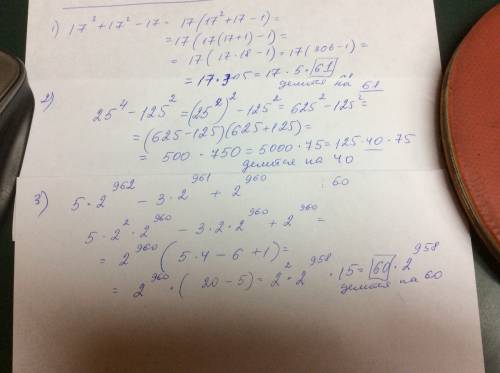 1) 17³ + 17² - 17 = 17(17² + 17 - 1) =
= 17(17(17+1) - 1) =
= 17(17·18 - 1) = 17(306 - 1) =
= 17·305 = 17·5·61
делится на 61
2) 25⁴ - 125² = (25²)² - 125² = 625² - 125² =
= (625-125)(625+125) =
= 500 · 750 = 5000·75 = 125·40·75
делится на 40
3) 5·2⁹⁶² - 3·2⁹⁶¹ + 2⁹⁶⁰ : 60
5·2²·2⁹⁶⁰ - 3·2·2⁹⁶⁰ + 2⁹⁶⁰ =
= 2⁹⁶⁰(5·4 - 6 + 1) =
= 2⁹⁶⁰·(20-5) = 2²·2⁹⁵⁸·15 = 60·2⁹⁵⁸
делится на 60